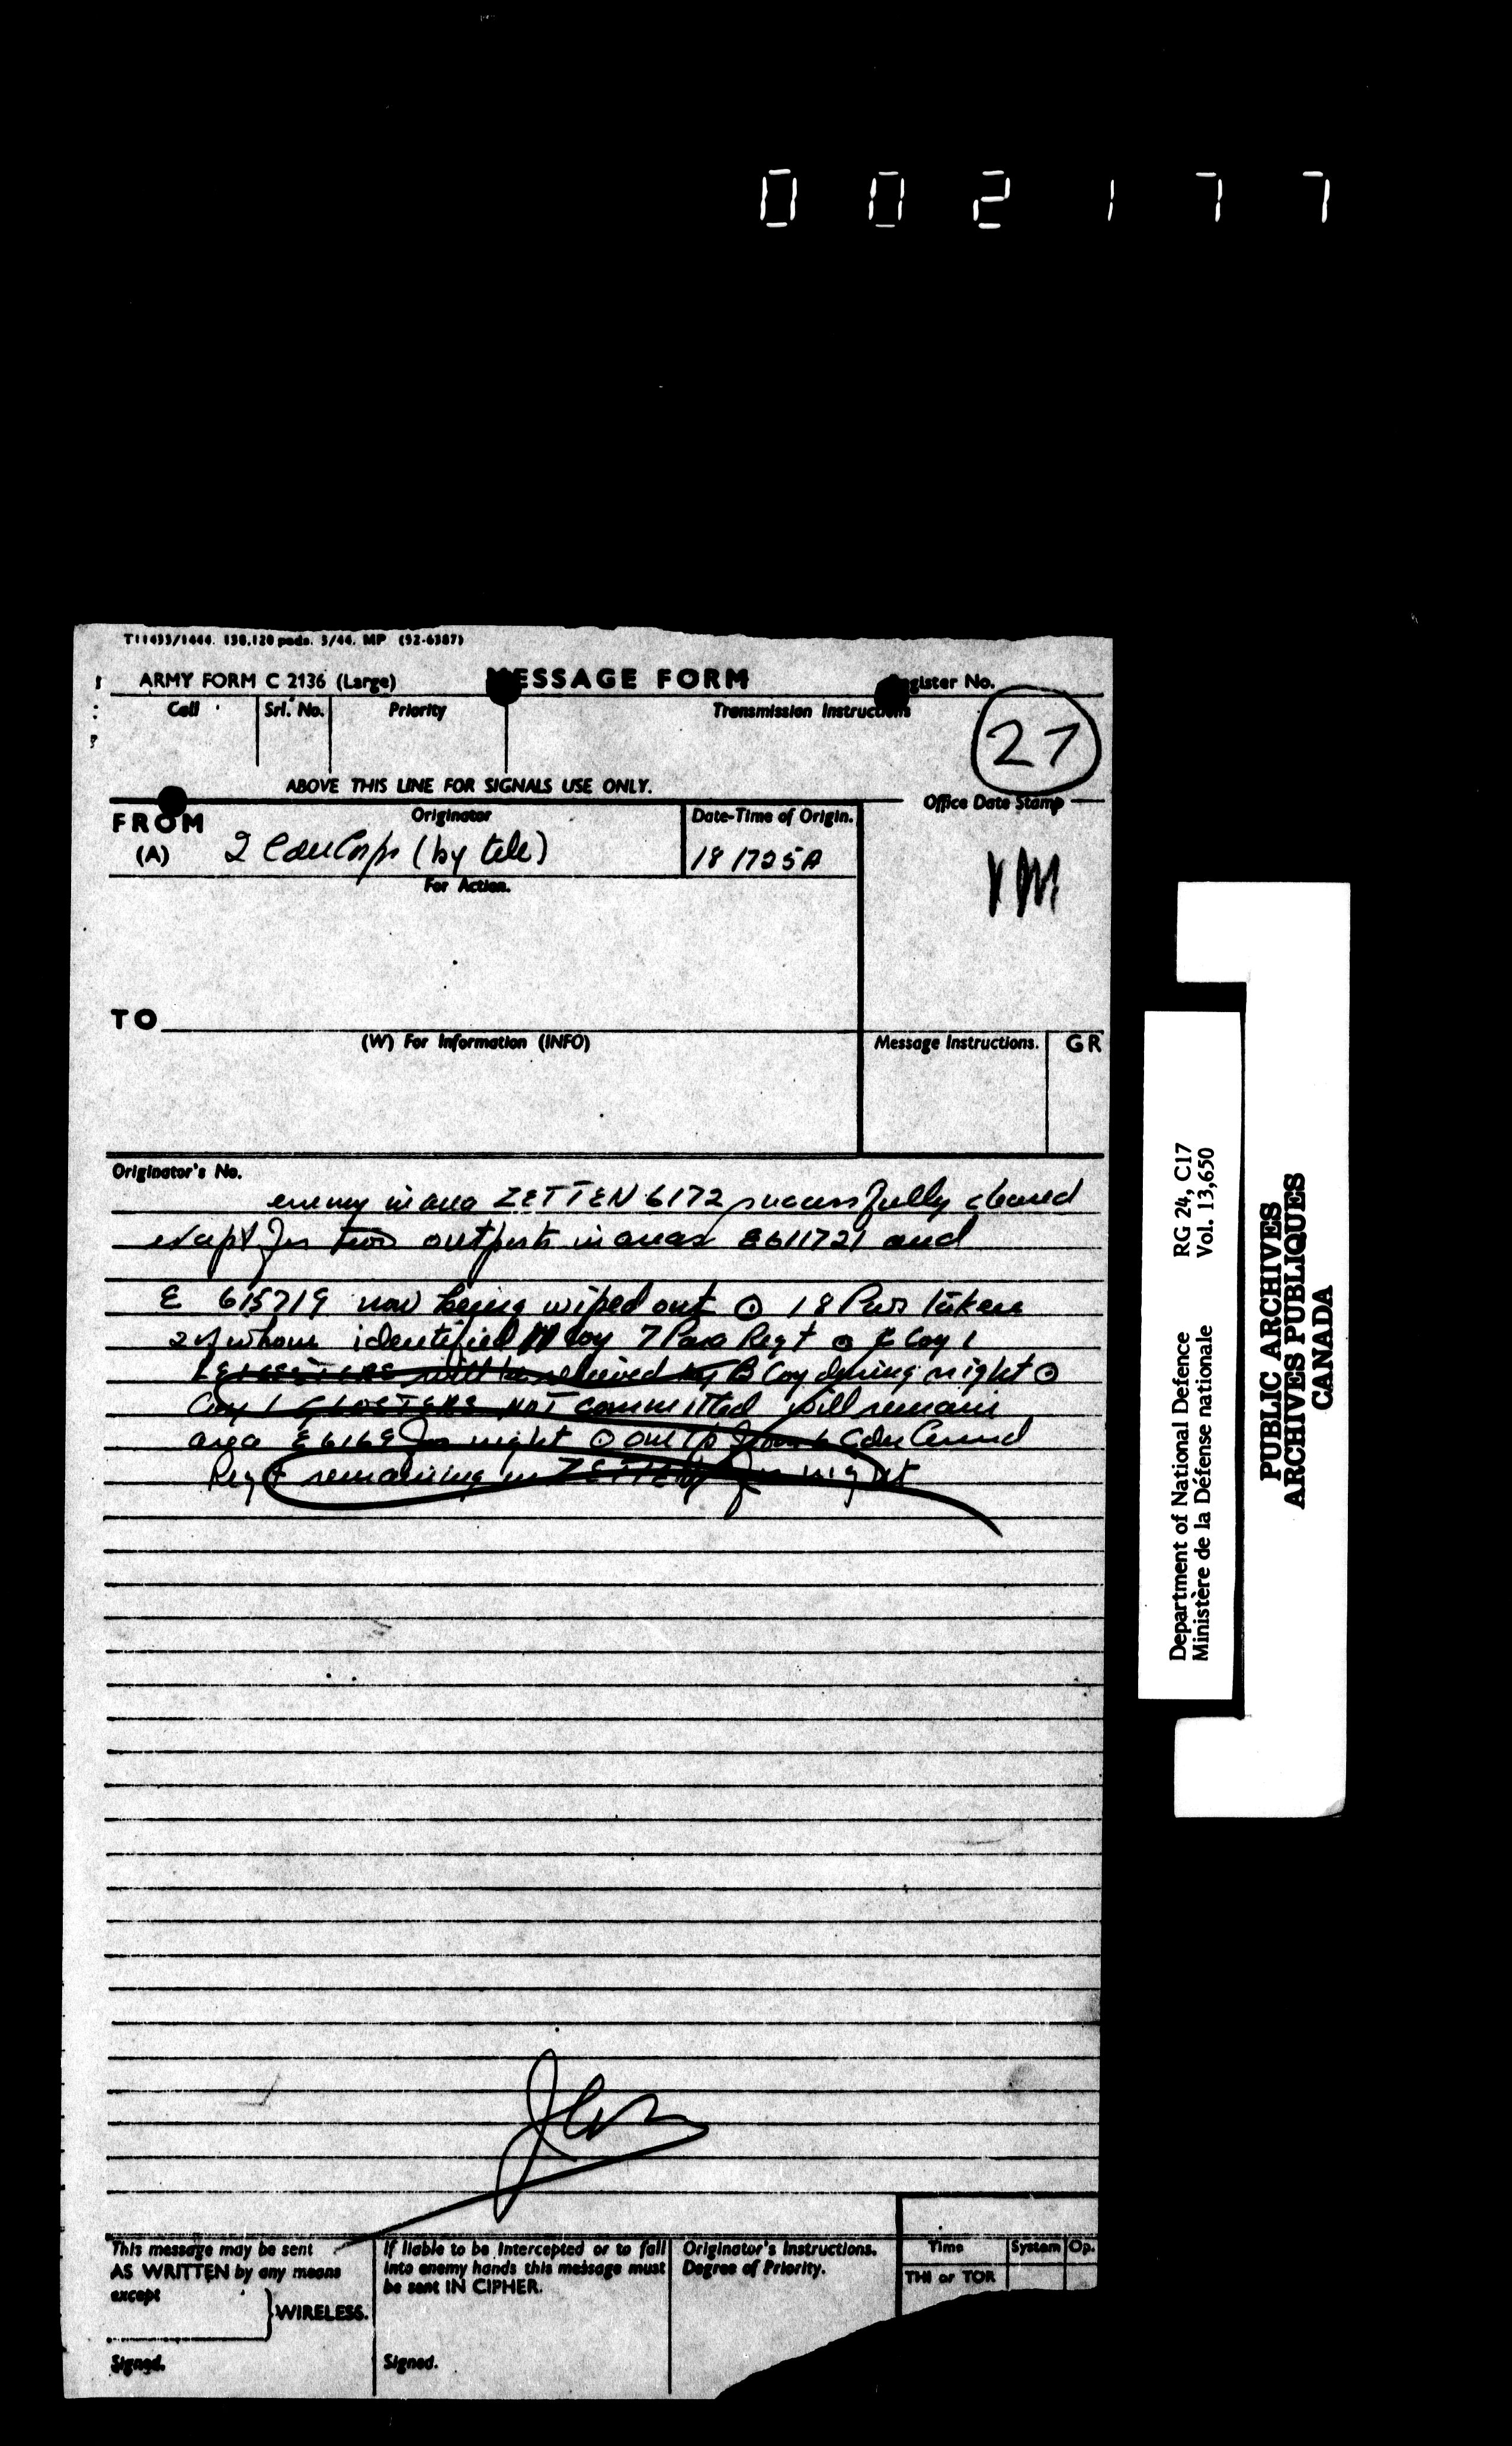 002177
T11433/1444. 130,120 pads. 3/44. MP (52-6387)
ARMY FORM C 2136 (Large) MESSAGE FORM Register No.
Call Srl. No. Priority Transmission Instructions
27
ABOVE THIS LINE FOR SIGNALS USE ONLY.
Office Date Stamp
FROM Originator Date-Time of Origin.
(A) 2 Cdn Corps (by tele) 181725A
For Action.
TO
(W) For Information (INFO) Message Instructions. GR
Originator's No.
enemy in area ZETTEN 6172 successfully cleared
except for two outposts in areas E611721 and
E 615719 now being wiped out ⊙ 18 Pws taken
2 of whom identified Coy 7 Para Regt ⊙ C Coy 1
LEICESTERS will be relieved by B Coy during night ⊙
Coy 1 GLOSTERS NOT committed will remain
area E6169 for night ⊙ one tp from 6 Cdn Armd
Regt remaining in ZETTEN for night
This message may be sent
AS WRITTEN by any means
except
WIRELESS.
Signed.
If liable to be intercepted or to fall
into enemy hands this message must
be sent IN CIPHER.
Signed.
Originator's Instructions.
Degree of Priority.
Time System Op.
THI or TOR
Department of National Defence RG 24, C17
Ministère de la Défense nationale Vol. 13,650
PUBLIC ARCHIVES
ARCHIVES PUBLIQUES
CANADA